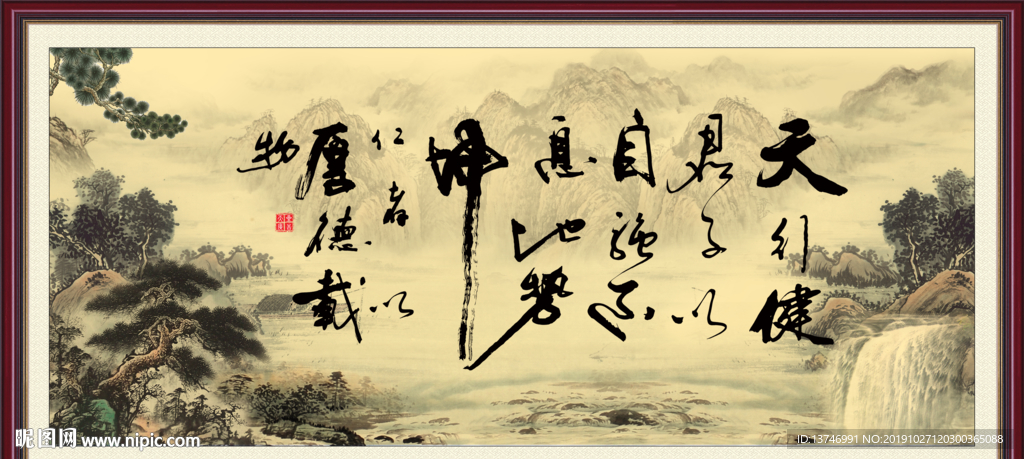 天行健
君子以
自強不
息地势
坤
仁者以
厚德載
物
昵图网 www.nipic.com
ID:13746991 NO:20191027120300365088